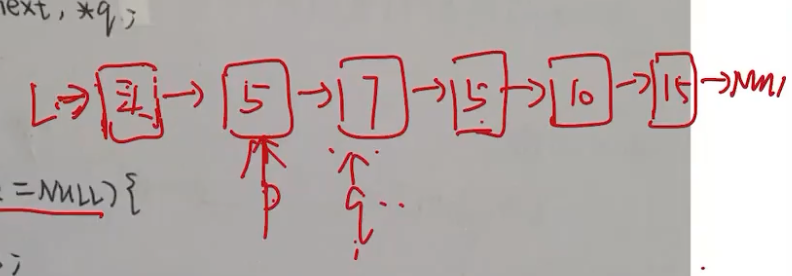 next, *q;
L → 头 → 5 → 7 → 5 → 10 → 15 → NULL
p q
=NULL){
;